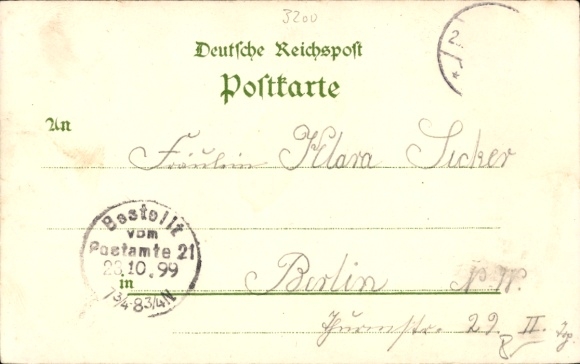 3200
Deutsche Reichspost
Postkarte
2
*
An
Fräulein Klara Sicker
Bestellt
vom
Postamte 21
23.10.99
7¾-8¾N
in
Berlin N.W.
Thurmstr. 29. II.